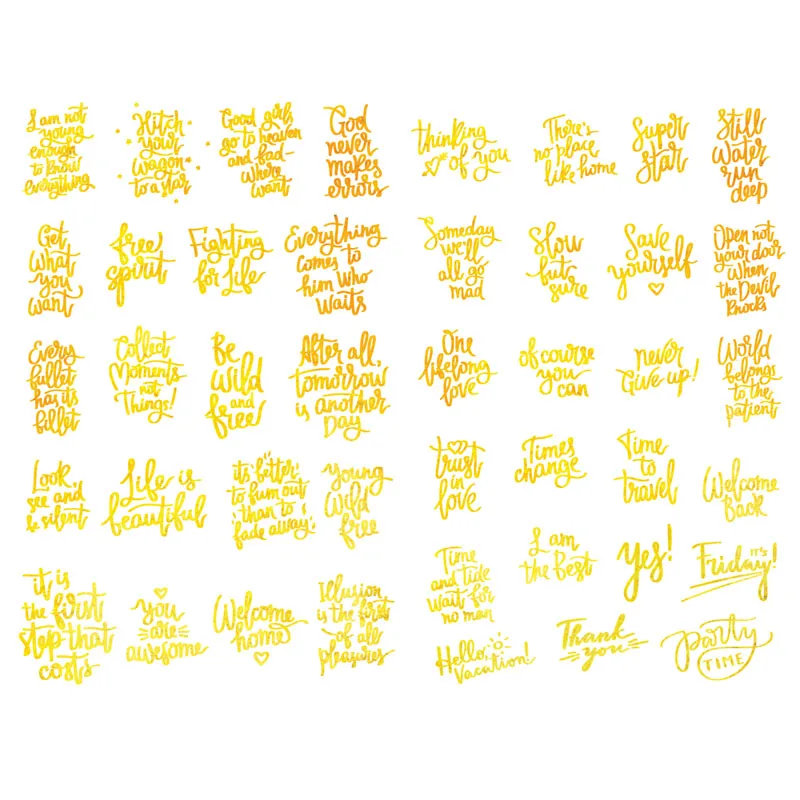 I am not
young
enough
to know
everything
Hitch
your
wagon
to a star
Good girls
go to heaven
and bad-
where
want
God
never
makes
errors
Get
what
you
want
free
spirit
Fighting
for Life
Everything
comes to
him who
waits
Every
bullet
has its
billet
Collect
Moments
not
Things!
Be
wild
and
free
After all,
tomorrow
is another
Day
Look
see and
be silent
Life is
beautiful
its better
to burn out
than to
fade away
young
wild
free
it is
the first
step that
costs
you
are
awesome
Welcome
home
Illusion
is the first
of all
pleasures
thinking
of you
There's
no place
like home
Super
star
Still
water
run
deep
Someday
we'll
all go
mad
Slow
but
sure
Save
yourself
Open not
your door
when
the Devil
knocks
One
lifelong
love
of course
you
can
never
Give up!
World
belongs
to the
patient
trust
in
love
Times
change
Time
to
travel
Welcome
Back
Time
and tide
wait for
no man
I am
the best
yes!
IT'S
Friday!
Hello,
Vacation!
Thank
you
Party
TIME